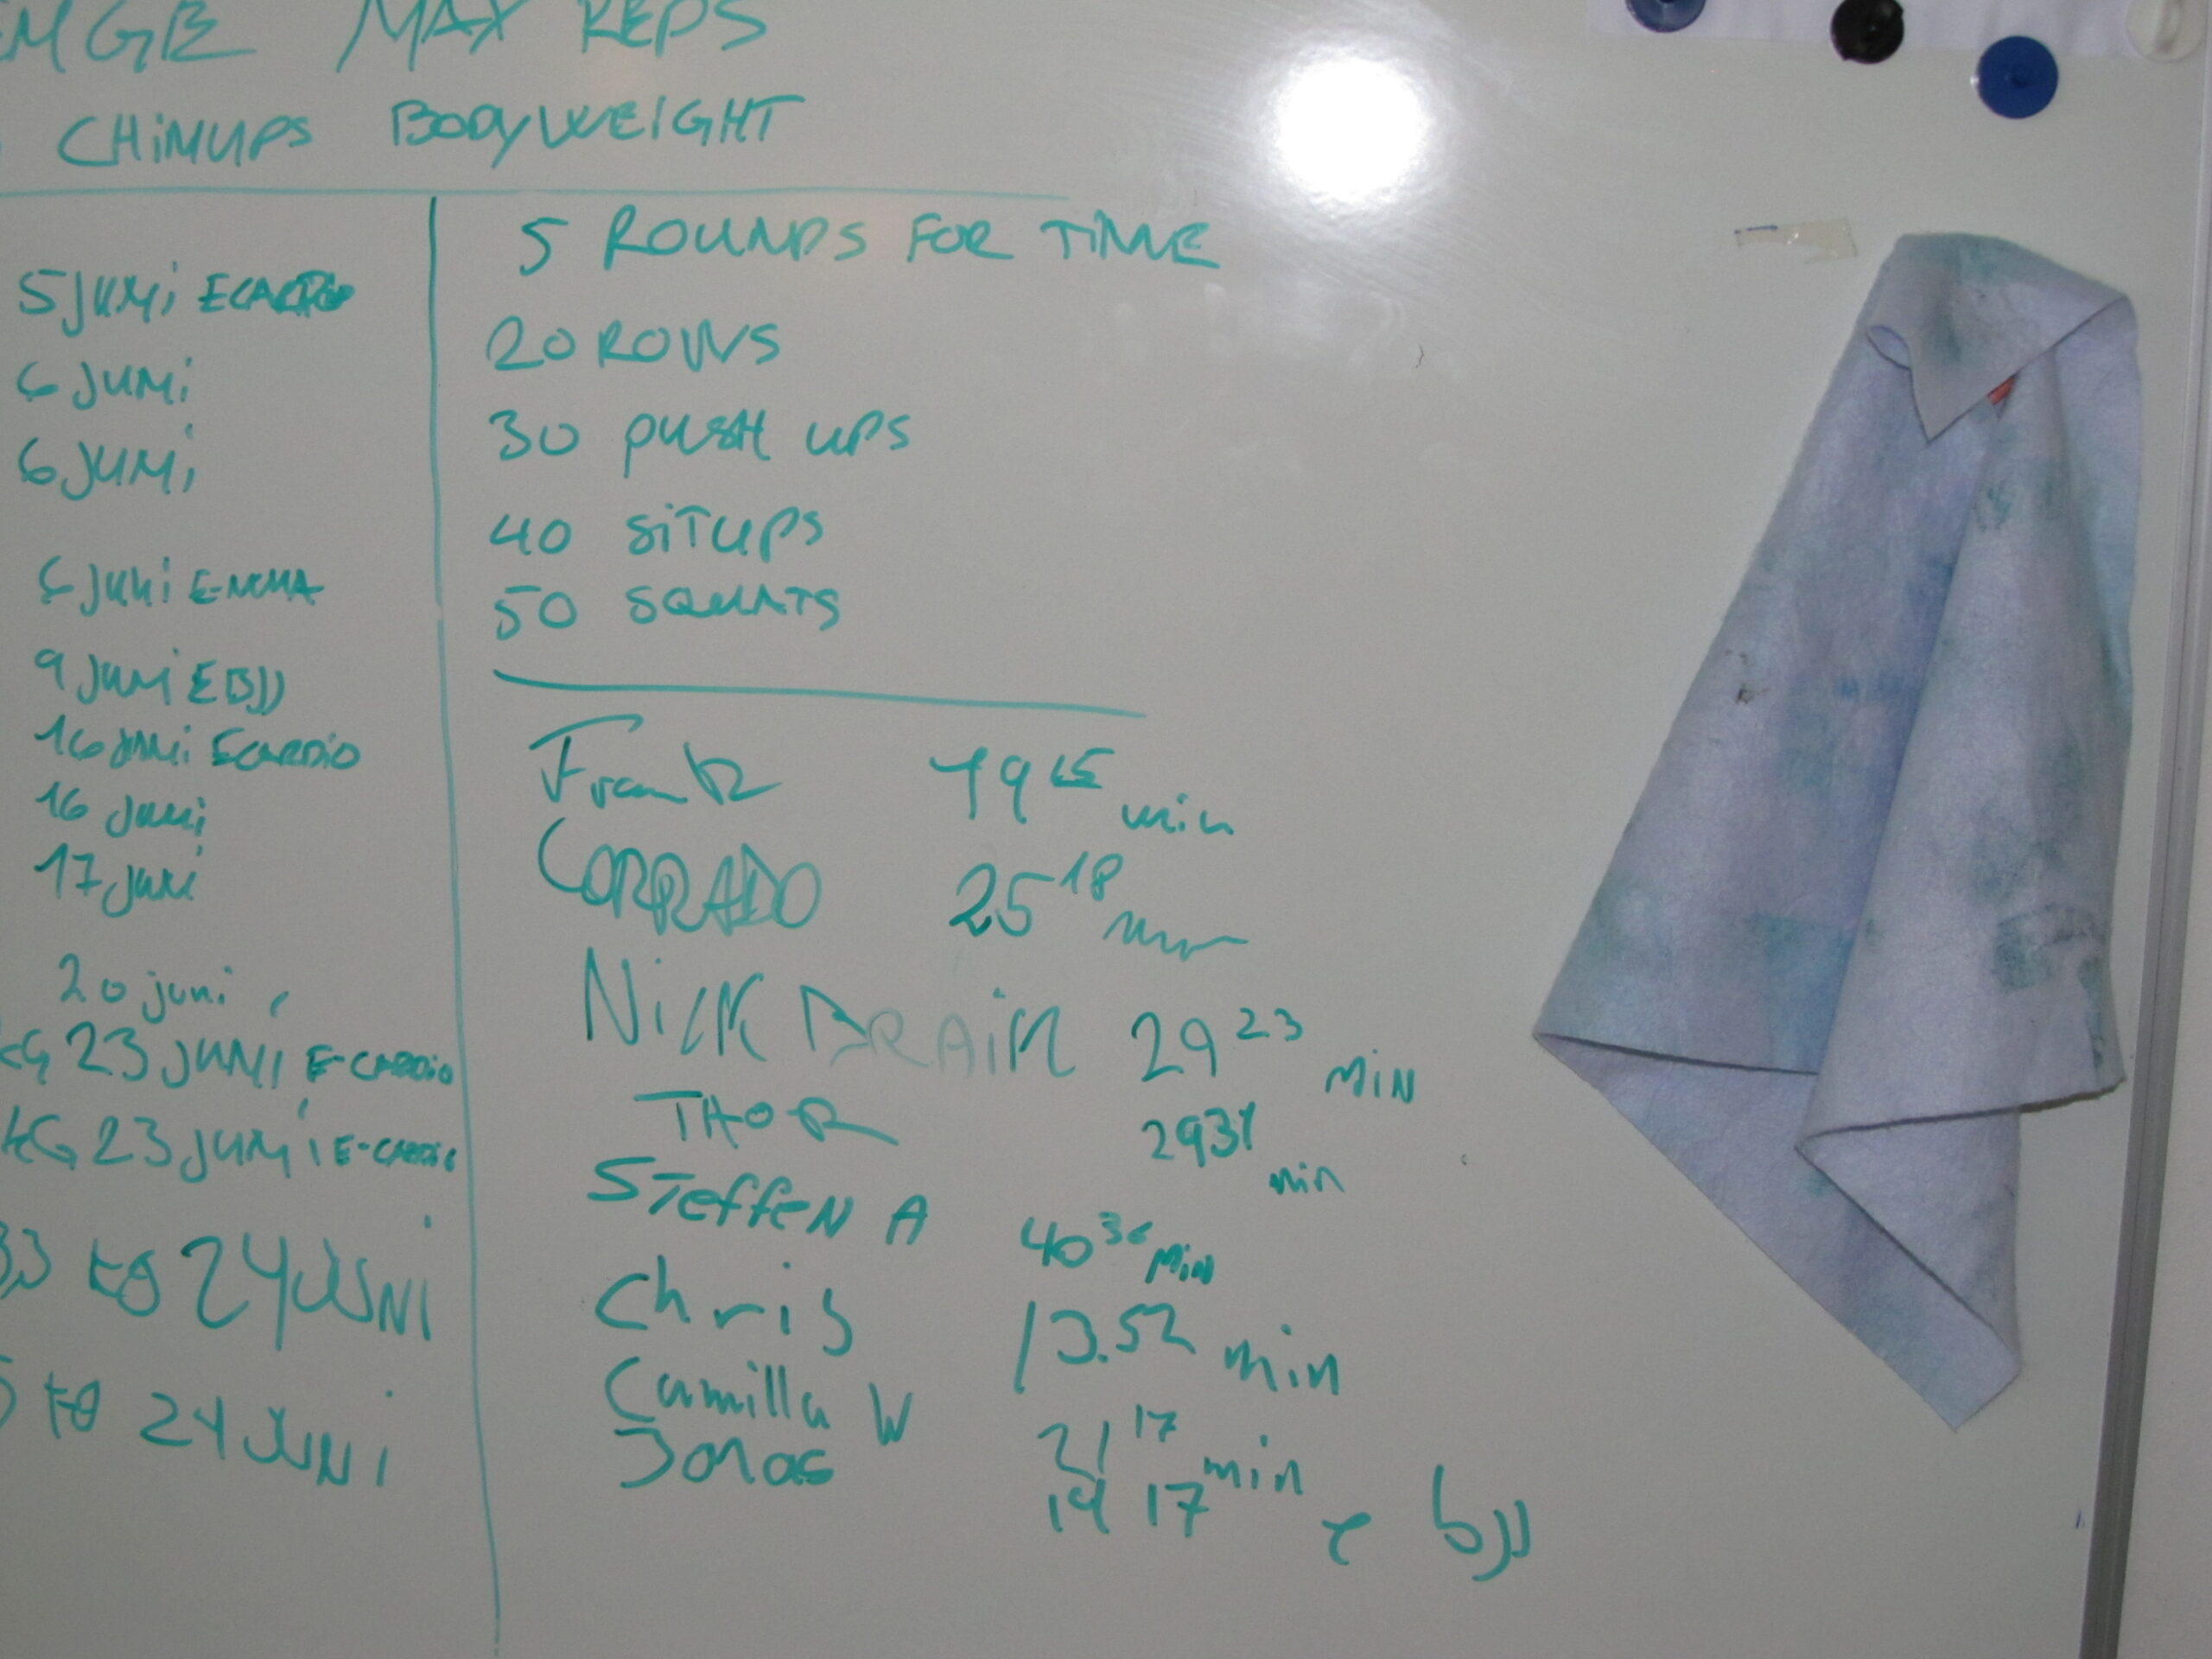 MAX REPS
CHINUPS BODYWEIGHT
5 JUNI
6 JUNI
6 JUNI
6 JUNI E-MMA
9 JUNI E BJJ
16 JUNI E CARDIO
16 juni
17 juni
20 juni
KG 23 JUNI E-CARDIO
KG 23 JUNI E-CARDIO
KG 24 JUNI
KG 24 JUNI
5 ROUNDS FOR TIME
20 ROWS
30 PUSH UPS
40 SITUPS
50 SQUATS
Frank 19 15 min
CORRADO 25 18 min
NICK BRAIN 29 23 MIN
THOR 29 31 min
STEFFEN A 40 36 MIN
Chris 13.52 min
Camilla W 21 17 min
Jonas 19 17 e bjj